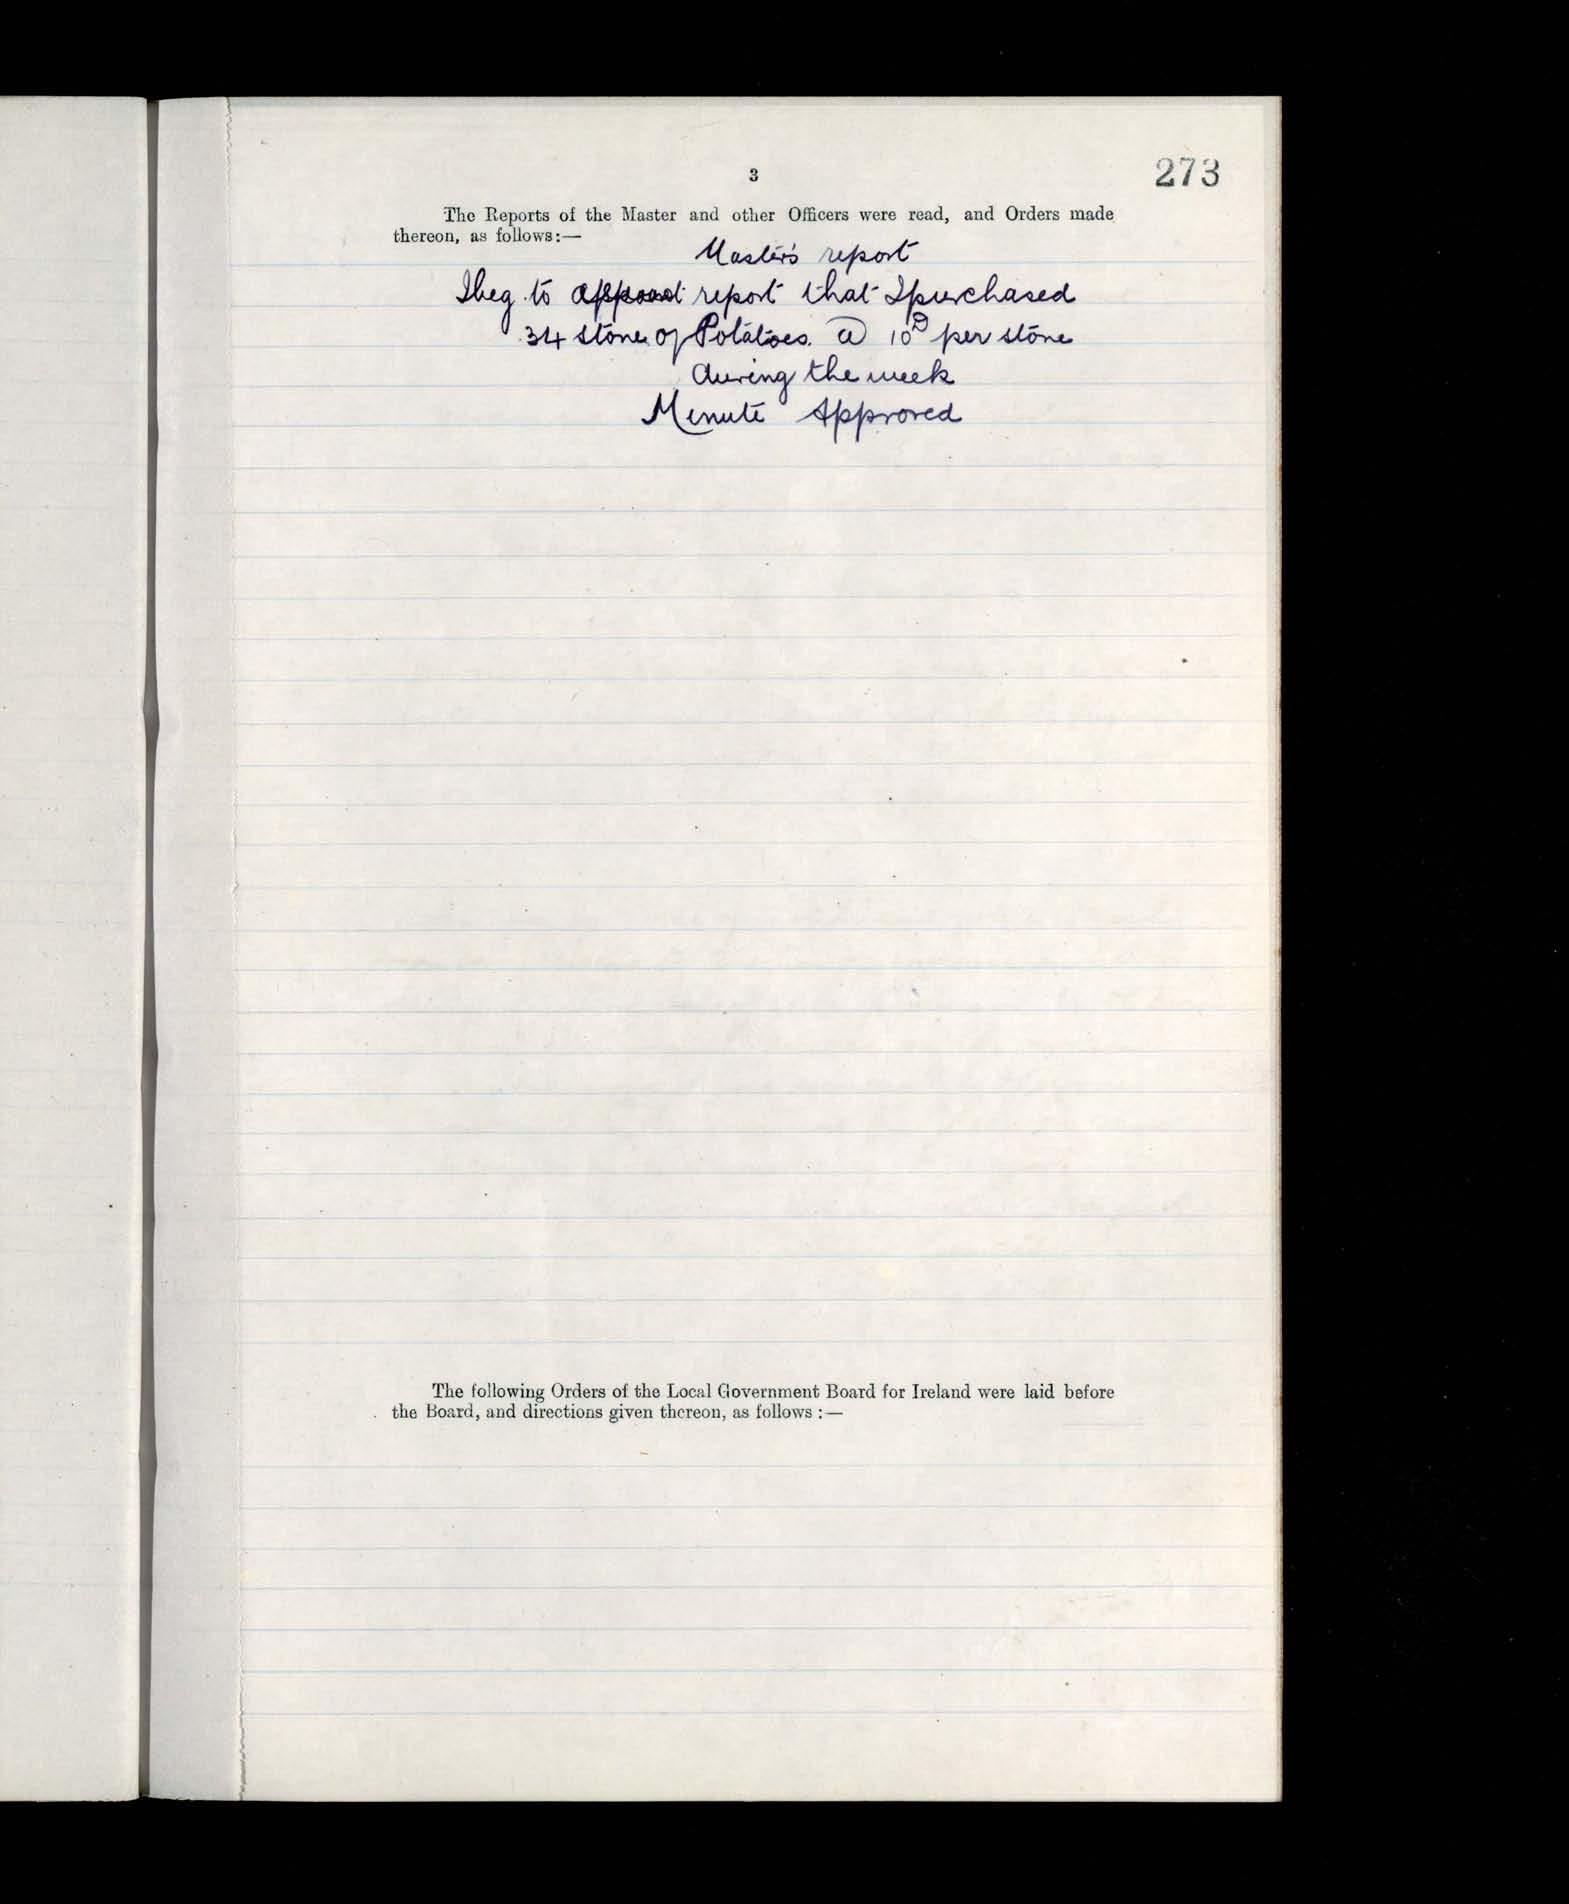 3
273
The Reports of the Master and other Officers were read, and Orders made
thereon, as follows:—
Master's report
I beg to report that I purchased
34 stone of Potatoes @ 10D per stone
during the week
Minute Approved
The following Orders of the Local Government Board for Ireland were laid before
the Board, and directions given thereon, as follows :—